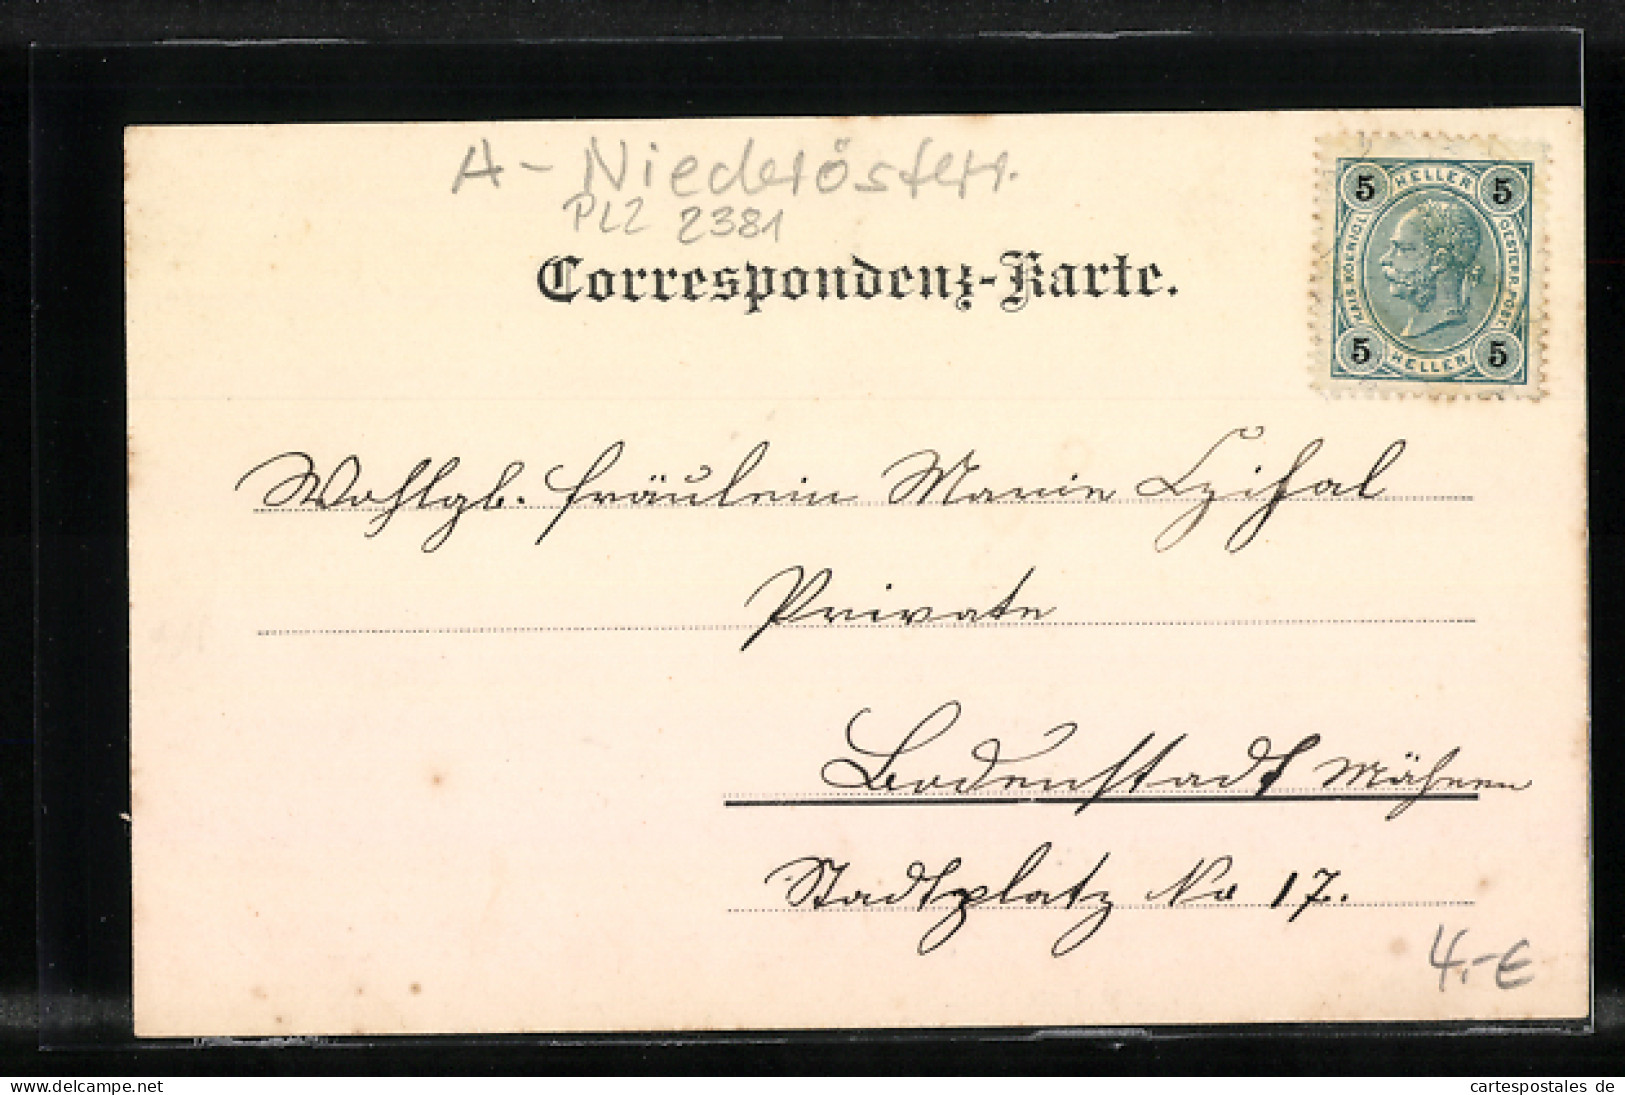 A - Niederösterr.
PLZ 2381
Correspondenz-Karte.
5 HELLER 5
KAIS. KOENIGL. OESTERR. POST.
5 HELLER 5
Wohlgb. Fräulein Marie
Private
Bodenstadt Mähren
Stadtplatz No 17.
4.-€
www.delcampe.net
cartespostales de